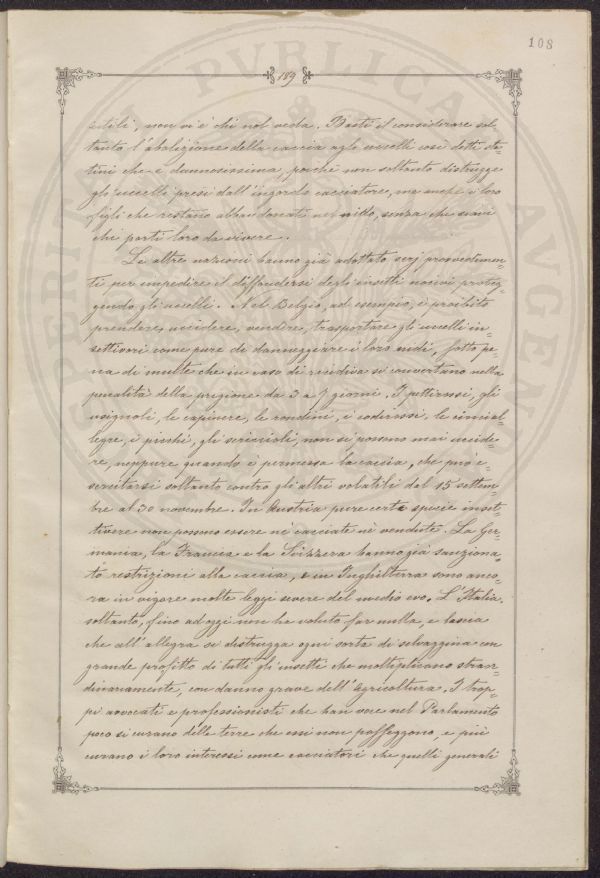 108
189
utili, non vi è chi nol veda. Basti il considerare sol=
tanto l'abolizione della caccia agli uccelli così detti sta=
tini che è dannosissima, poichè non soltanto distrugge
gli uccelli presi dall'ingordo cacciatore, ma anche i loro
figli che restano abbandonati nel nido, senza che siavi
chi porti loro da vivere.
Le altre nazioni hanno già adottato serj provvedimen=
ti per impedire il diffondersi degli insetti nocivi proteg=
gendo gli uccelli. Nel Belgio, ad esempio, è proibito
prendere, uccidere, vendere, trasportare gli uccelli in=
settivori come pure di danneggiare i loro nidi, sotto pe=
na di multe che in caso di recidiva si convertono nella
penalità della prigione da 3 a 7 giorni. I pettirossi, gli
usignoli, le capinere, le rondini, i codirossi, le cincial=
legre, i picchi, gli scriccioli, non si possono mai uccide=
re, neppure quando è permessa la caccia, che può e=
sercitarsi soltanto contro gli altri volatili del 15 settem=
bre al 30 novembre. In Austria pure certe specie inset=
tivere non possono essere nè cacciate nè vendute. La Ger=
mania, la Francia e la Svizzera hanno già sanziona=
to restrizioni alla caccia, e in Inghilterra sono anco=
ra in vigore molte leggi severe del medio evo. L'Italia
soltanto, fino ad oggi non ha voluto far nulla, e lascia
che all'allegra si distrugga ogni sorta di selvaggina con
grande profitto di tutti gli insetti che moltiplicano straor=
dinariamente, con danno grave dell'Agricoltura. I trop=
pi avvocati e professionisti che han voce nel Parlamento
poco si curano delle terre che essi non posseggono, e più
curano i loro interessi come cacciatori che quelli generali